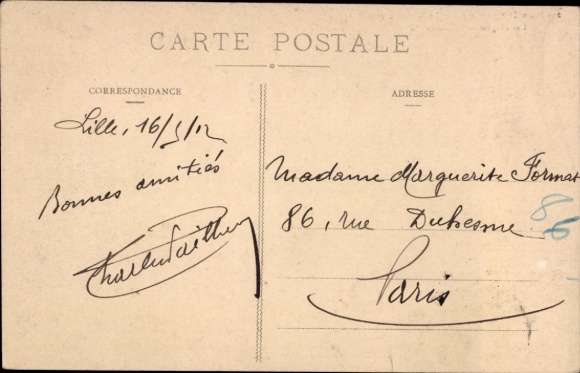 CARTE POSTALE
CORRESPONDANCE
ADRESSE
Lille, 16/5/12
Bonnes amitiés
Charles
Madame Marguerite Format
86, rue Dubesme
86
Paris